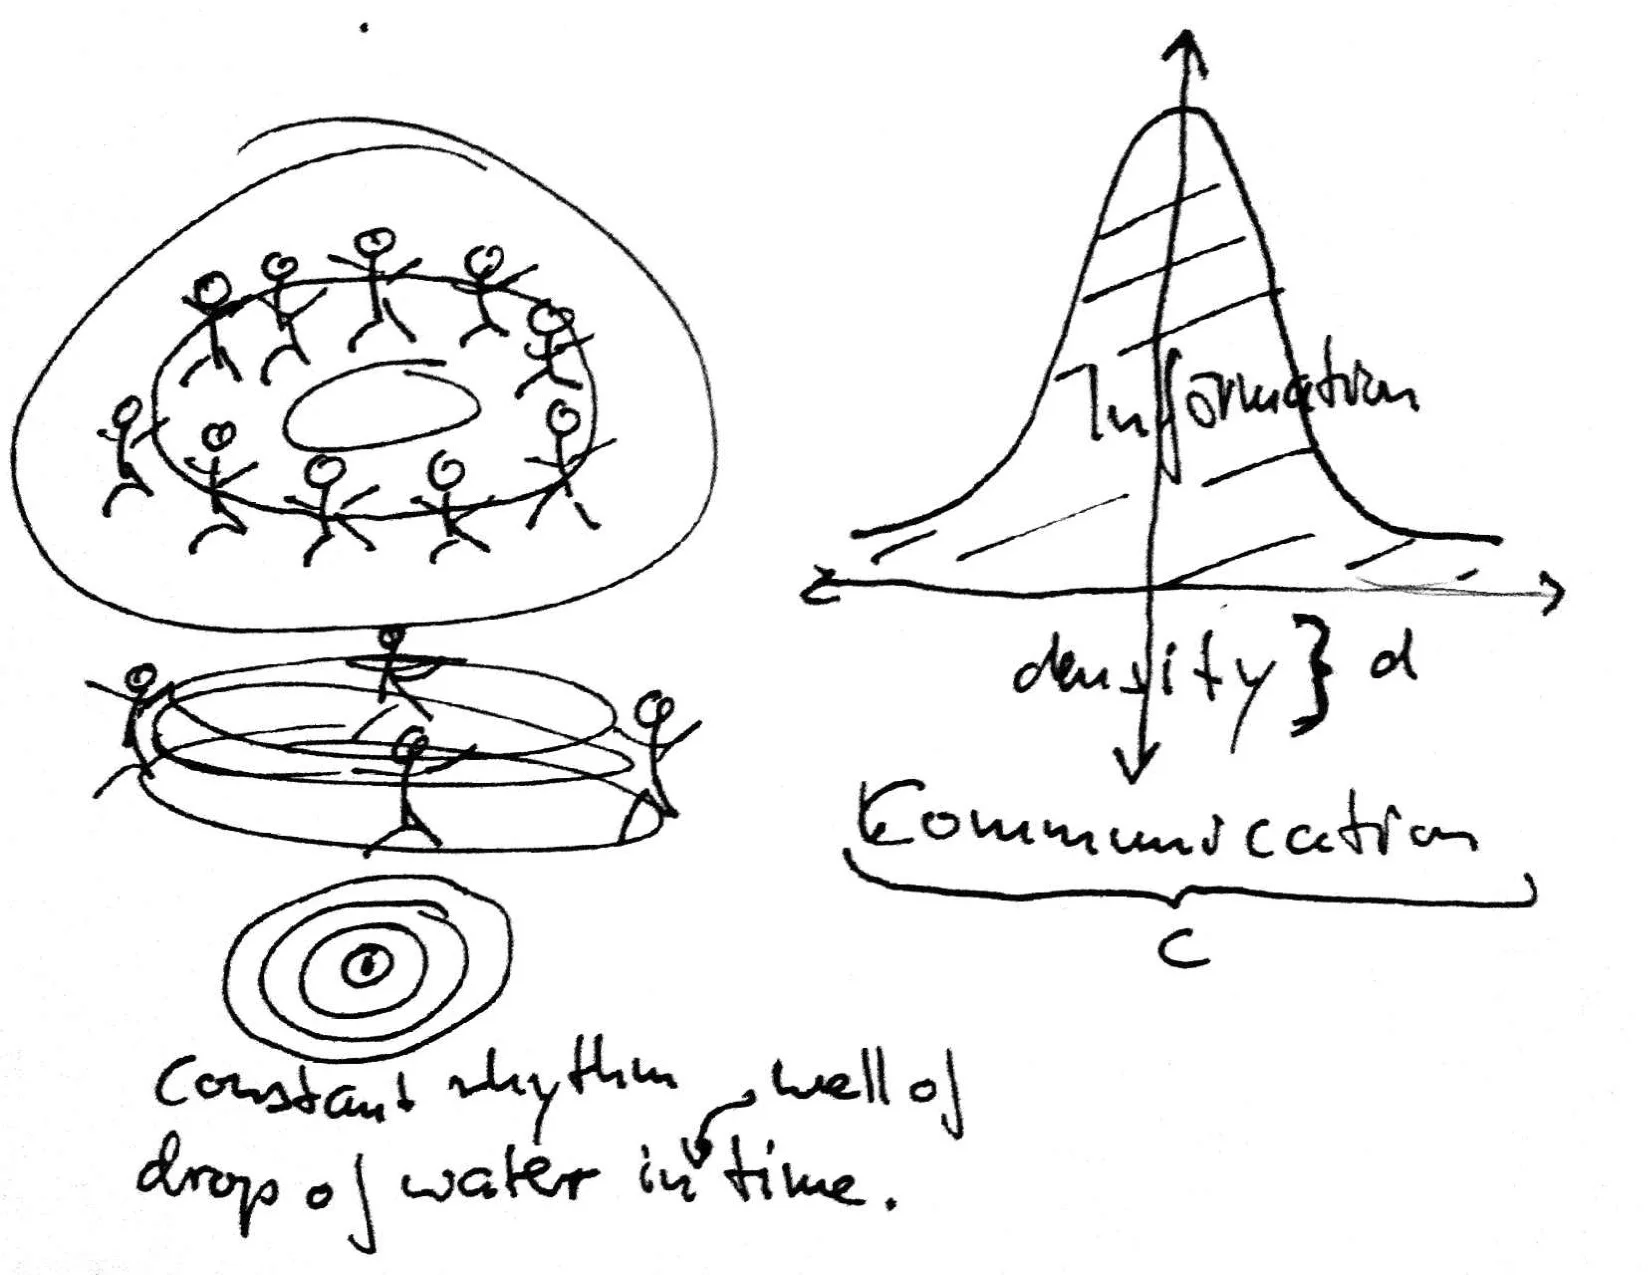 Information
density } d
Communication
c
Constant rhythm well of
drop of water in time.